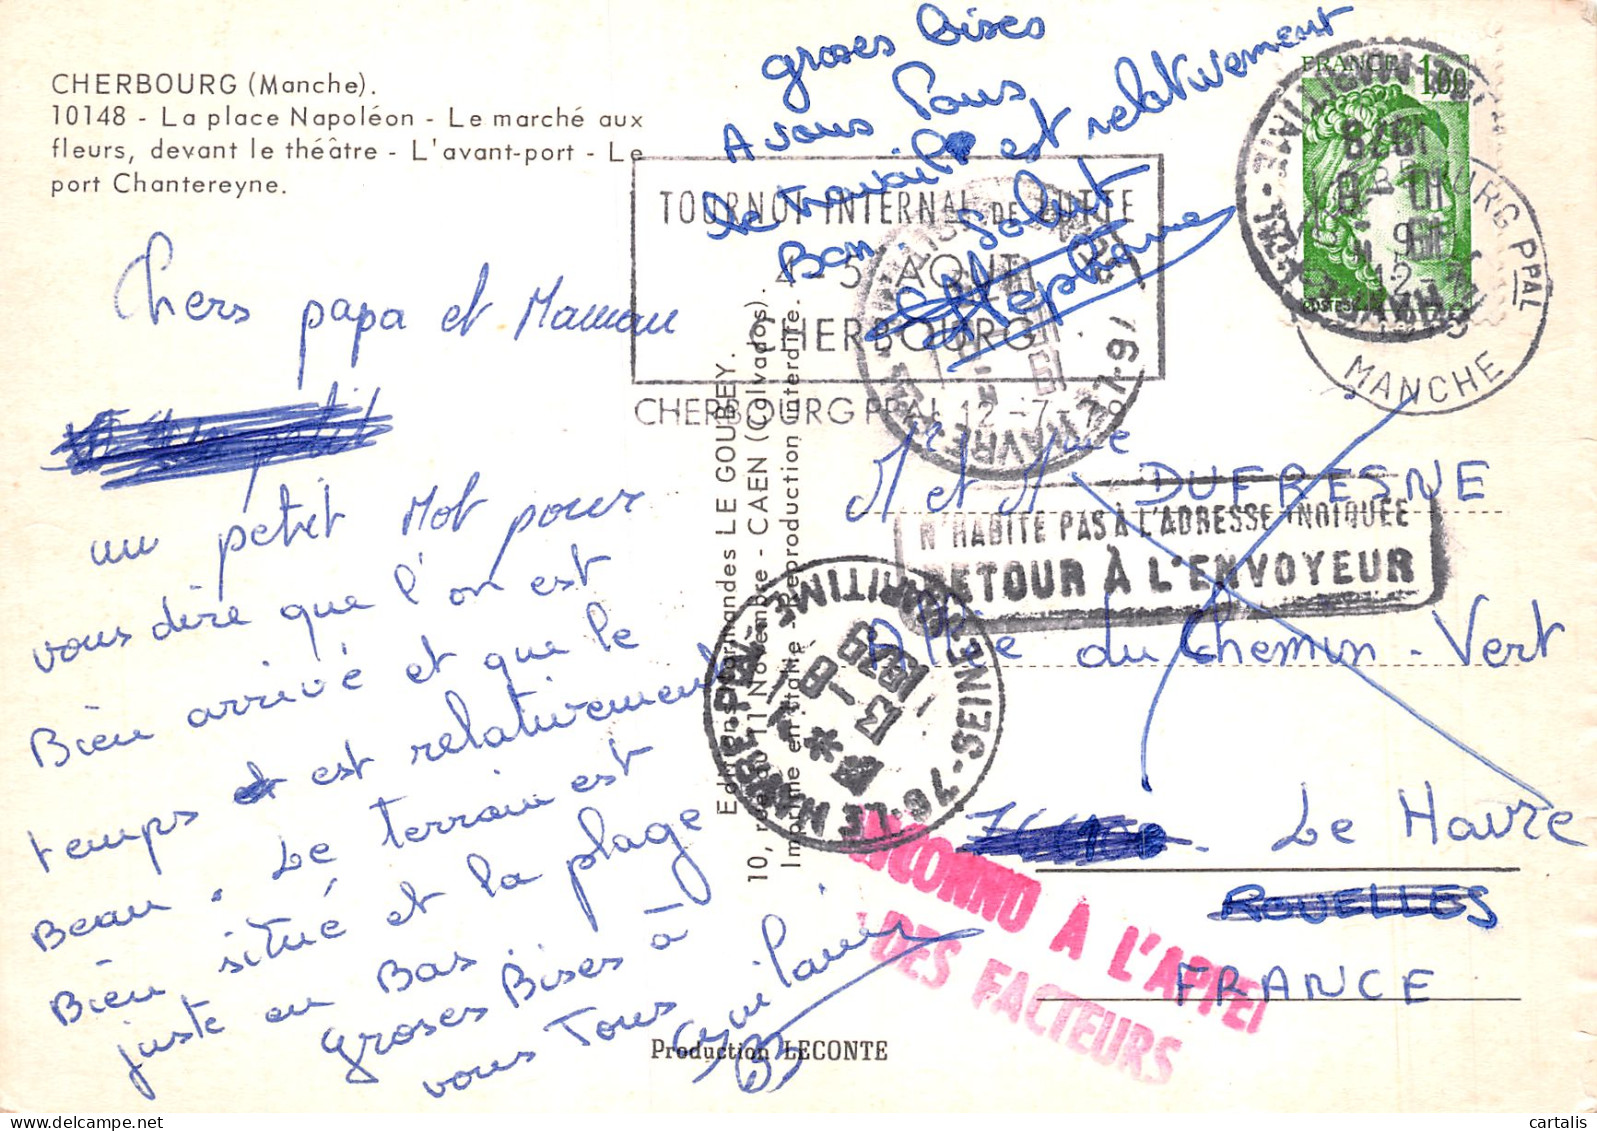 CHERBOURG (Manche).
10148 - La place Napoléon - Le marché aux
fleurs, devant le théâtre - L'avant-port - Le
port Chantereyne.
Chers papa et Maman
un petit Mot pour
vous dire que l'on est
Bien arrivé et que le
temps est relativement
Beau. Le terrain est
Bien situé et la plage
juste en Bas.
groses Bises à
vous Tous
groses bises
A vous Tous
le travail est relativement
Bon. Salut
Stephane
TOURNOI INTERNAL DE LUTTE
4-5 AOUT
CHERBOURG
CHERBOURG PPAL 12-7
FRANCE 1,00
MANCHE
Editions Normandes LE GOUBEY.
10, rue du 11 Novembre - CAEN (Calvados).
Imprimé en Italie - Reproduction interdite.
Mr et Mme DUFRESNE
N'HABITE PAS À L'ADRESSE INDIQUÉE
RETOUR À L'ENVOYEUR
Allée du Chemin-Vert
76-LE HAVRE-PPAL-SEINE-MARITIME
13-8
1979
Le Havre
ROUELLES
FRANCE
INCONNU A L'APPEL
DES FACTEURS
Production LECONTE
cartalis